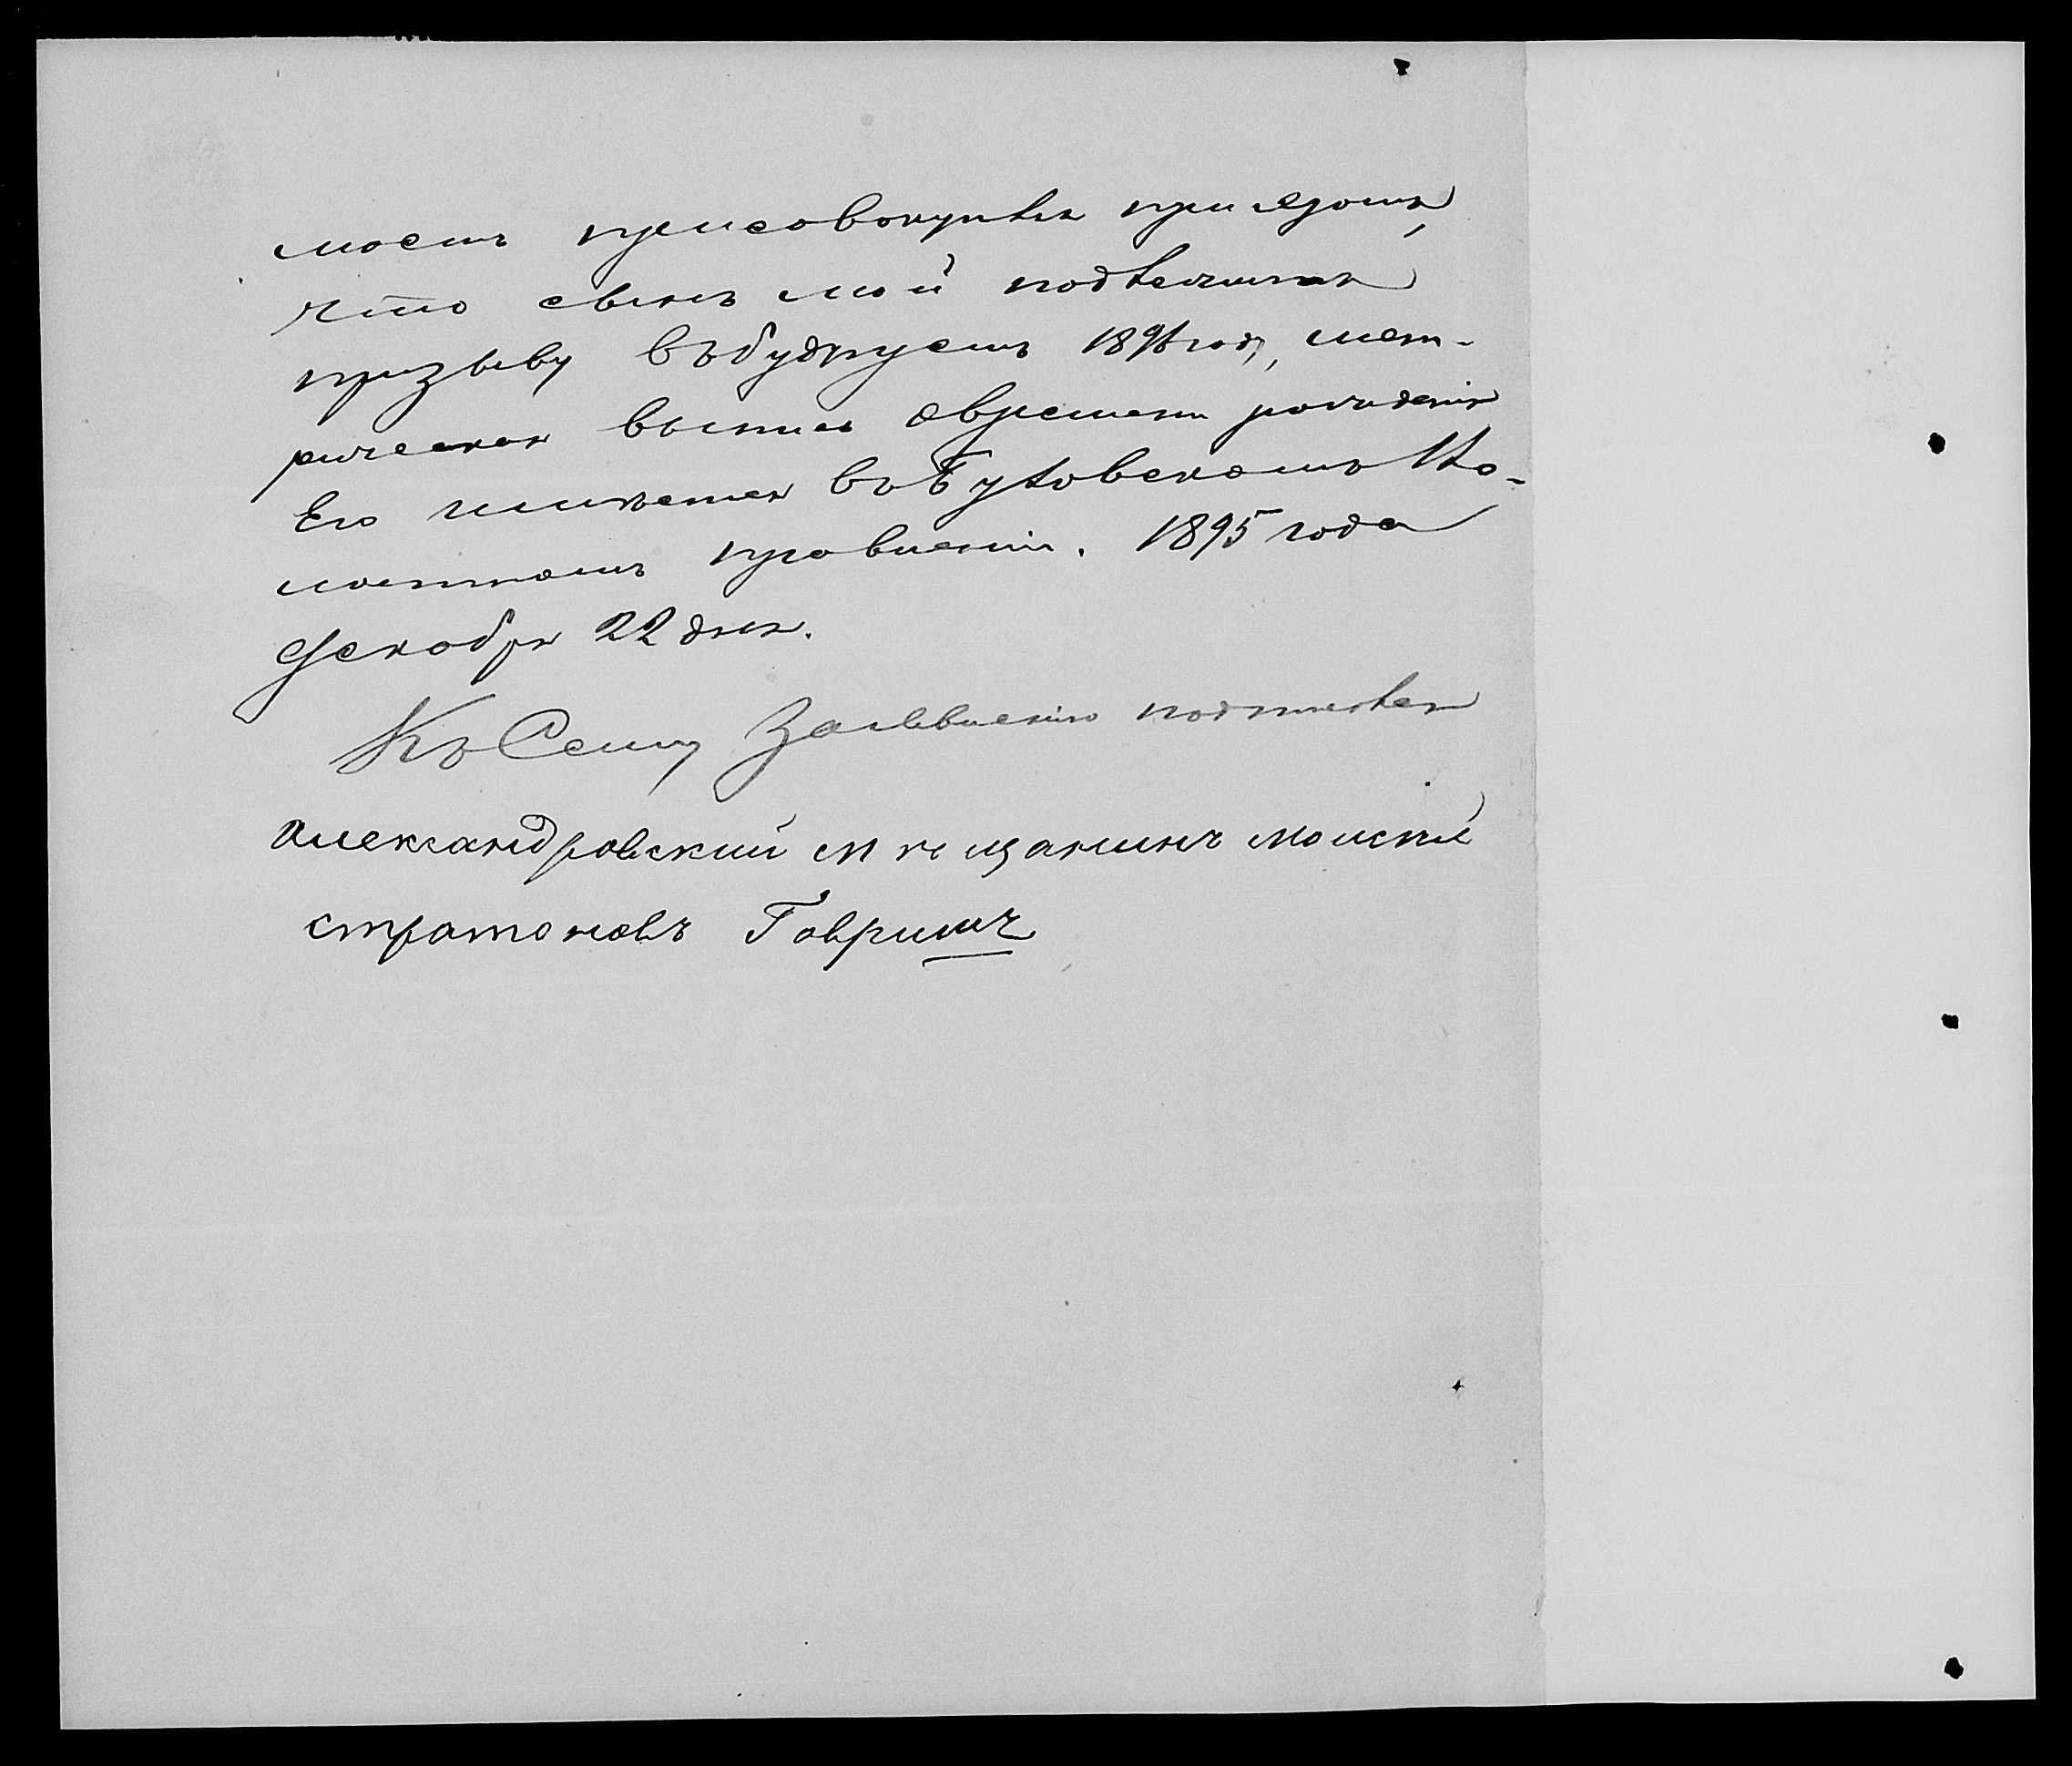 моемъ присовокупляя при этомъ,
что сынъ мой подлежитъ
призыву въ будущемъ 1896 году, мет-
рическая выпись о времени рожденія
Его имѣется въ Бутовскомъ Во-
лостномъ правленіи. 1895 года
Декабря 22 дня.
Къ Сему Заявленію подписался
александровский мѣщанинъ моисѣй
стратоновъ Гавринъ